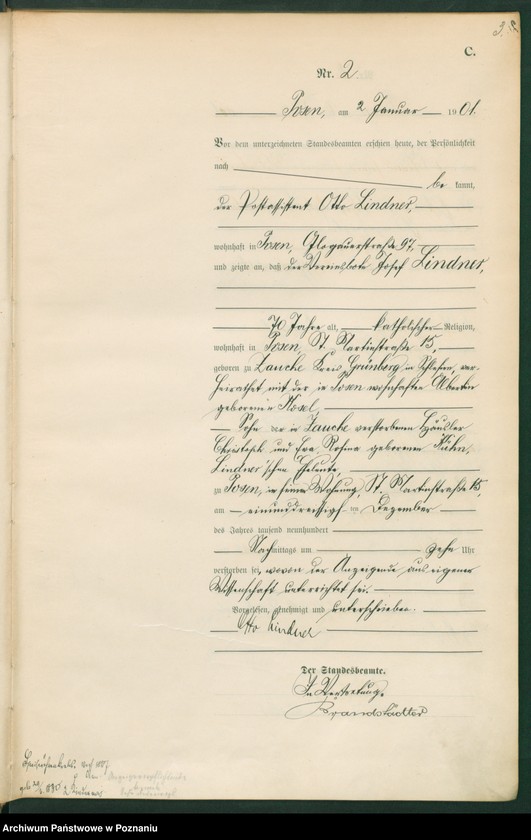 C.
Nr. 2
Posen, am 2 Januar 1901.
Vor dem unterzeichneten Standesbeamten erschien heute, der Persönlichkeit
nach
bekannt,
der Postassistent Otto Lindner,
wohnhaft in Posen, Glogauerstraße 97,
und zeigte an, daß der Vereinsbote Josef Lindner,
70 Jahre alt, katholischer Religion,
wohnhaft in Posen, St. Martinstraße 15,
geboren zu Zauche Kreis Grünberg in Schlesien, ver-
heirathet mit der in Posen wohnhaften Albertine
geborenen Kosel,
Sohn der in Zauche verstorbenen Häusler
Christoph und Eva Rosina geborenen Kuhn,
Lindner'schen Eheleute,
zu Posen, in seiner Wohnung, St. Martinstraße 15,
am einunddreissigsten Dezember
des Jahres tausend neunhundert
Nachmittags um zehn Uhr
verstorben sei, wovon der Anzeigende aus eigener
Wissenschaft unterrichtet sei.
Vorgelesen, genehmigt und unterschrieben.
Otto Lindner
Der Standesbeamte.
In Vertretung.
Brandstädter
Archiwum Państwowe w Poznaniu